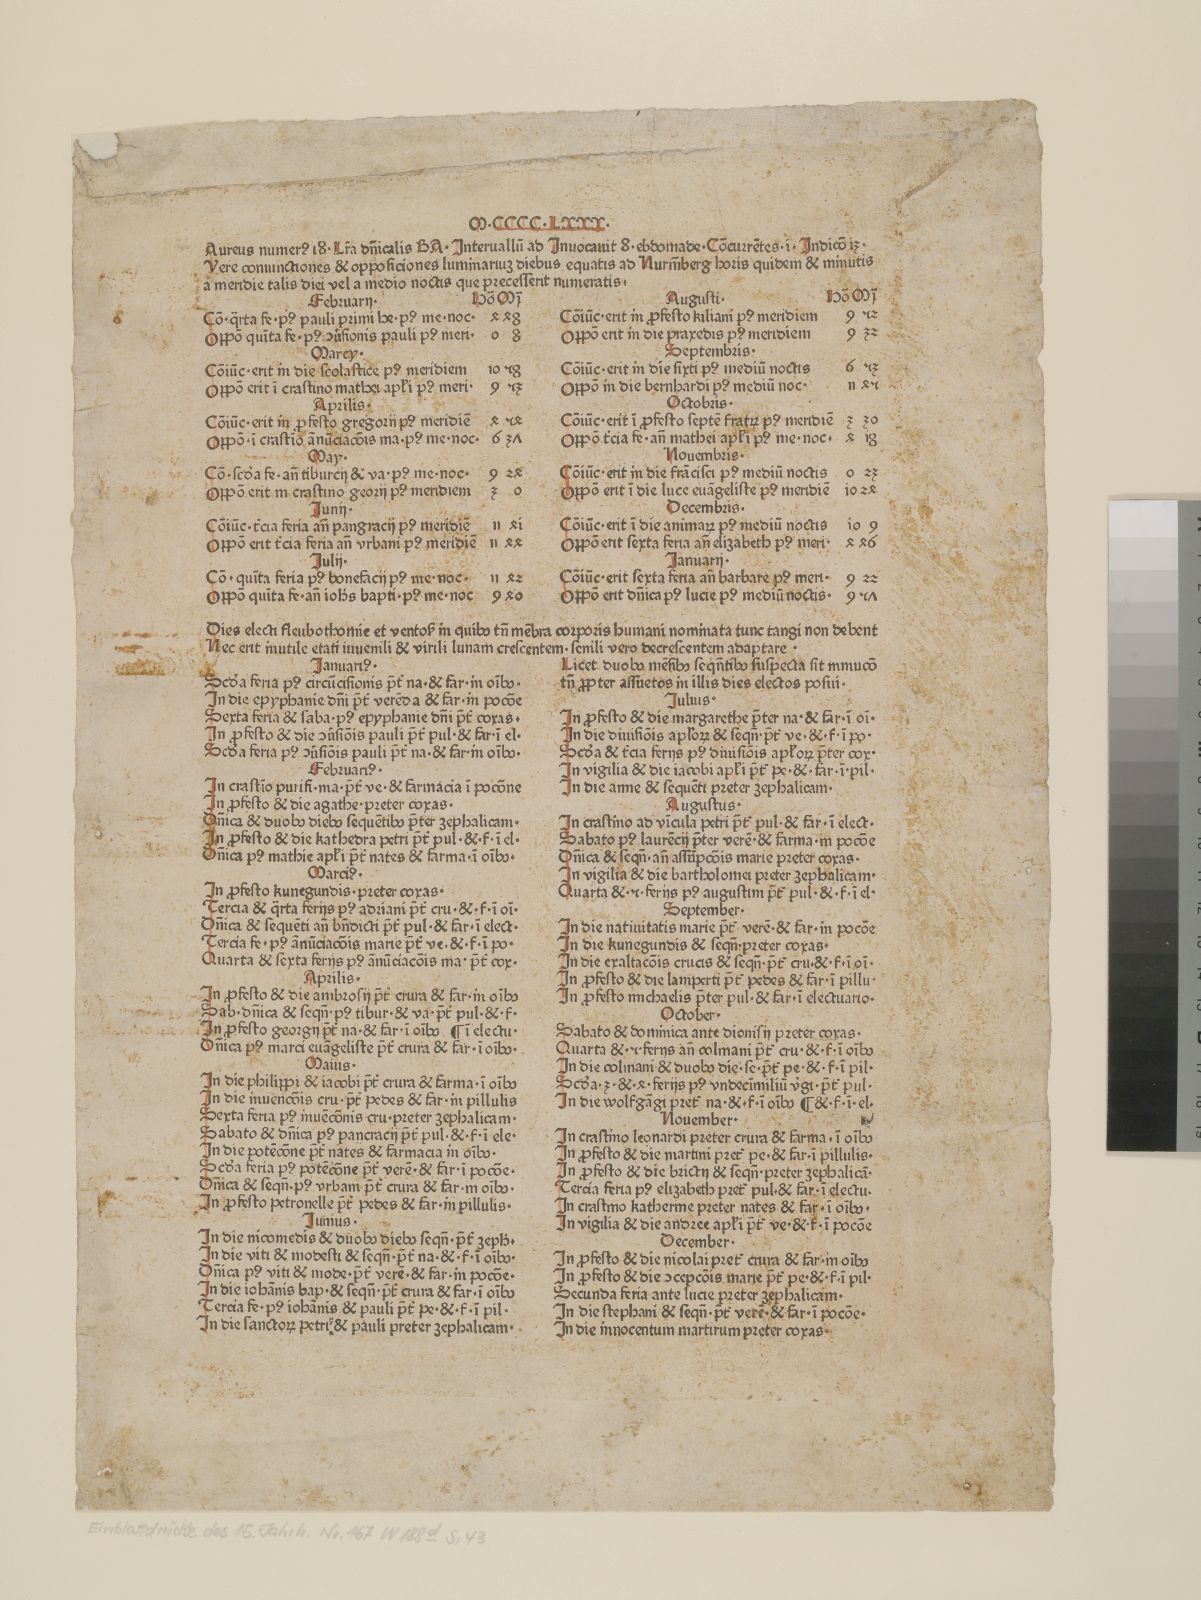 M·CCCC·LXXX·
Aureus numerꝰ 18· Lr̄a dn̄icalis BA· Interuallū ad Inuocauit 8· ebdomade· Cōcurrētes·i· Indicō 13·
Vere coniunctiones & oppositiones luminariuꝫ diebus equatis ad Nurm̄berg horis quidem & minutis
a meridie talis diei vel a medio noctis que precesserit numeratis·
Februarij· Hō Mī
Cō·q̄rta fe·pꝰ pauli primi he·pꝰ me·noc· ꝝ ꝝ8
Oppō quīta fe·pꝰ ↄūsionis pauli pꝰ meri· 0 8
Marcij·
Cōiūc·erit in die scolastice pꝰ meridiem 10 58
Oppō erit ī crastino mathei apl̄i pꝰ meri· 9 53
Aprilis·
Cōiūc·erit in ꝓfesto gregorij pꝰ meridiē 4 54
Oppō·ī crastīo ānūciacōis ma·pꝰ me·noc· 6 37
May·
Cō·scd̄a fe·an̄ tiburcij & va·pꝰ me·noc· 9 24
Oppō erit in crastino georij pꝰ meridiem 3 0
Junij·
Cōiūc·t̄cia feria an̄ pangracij pꝰ meridiē 11 41
Oppō erit t̄cia feria an̄ vrbani pꝰ meridiē 11 44
Julij·
Cō·quīta feria pꝰ bonefacij pꝰ me·noc· 11 42
Oppō quīta fe·an̄ ioh̄s bapti·pꝰ me·noc 9 40
Augusti· Hō Mī
Cōiūc·erit in ꝓfesto kiliani pꝰ meridiem 9 52
Oppō erit in die praxedis pꝰ meridiem 9 32
Septembris·
Cōiūc·erit in die sixti pꝰ mediū noctis 6 53
Oppō in die bernhardi pꝰ mediū noc· 11 45
Octobris·
Cōiūc·erit ī ꝓfesto septē fratꝝ pꝰ meridiē 3 30
Oppō t̄cia fe·an̄ mathei apl̄i pꝰ me·noc· 4 18
Nouembris·
Cōiūc·erit in die frācisci pꝰ mediū noctis 0 23
Oppō erit ī die luce euāgeliste pꝰ meridiē 10 24
Decembris·
Cōiūc·erit ī die animaꝝ pꝰ mediū noctis 10 9
Oppō erit sexta feria an̄ elizabeth pꝰ meri· 4 46
Januarij·
Cōiūc·erit sexta feria an̄ barbare pꝰ meri· 9 22
Oppō erit dn̄ica pꝰ lucie pꝰ mediū noctis· 9 57
Dies electi fleubothomie et ventoꝝ in quibꝰ tn̄ mēbra corporis humani nominata tunc tangi non debent
Nec erit inutile etati iuuenili & virili lunam crescentem·senili vero decrescentem adaptare·
Januariꝰ·
Scd̄a feria pꝰ circūcisionis p̄t̄ na·& far·in oībꝰ·
In die epyphanie dn̄i p̄t̄ verēda & far·in pocōe
Sexta feria & saba·pꝰ epyphanie dn̄i p̄t̄ coxas·
In ꝓfesto & die ↄūsiōis pauli p̄t̄ pul·& far·ī el·
Scd̄a feria pꝰ ↄūsiōis pauli p̄t̄ na·& far·in oībꝰ·
Februariꝰ·
In crastīo purifi·ma·p̄t̄ ve·& farmacia ī pocōne
In ꝓfesto & die agathe·preter coxas·
Dn̄ica & duobꝰ diebꝰ sequētibꝰ p̄ter zephalicam·
In ꝓfesto & die kathedra petri p̄t̄ pul·&·f·ī el·
Dn̄ica pꝰ mathie apl̄i p̄t̄ nates & farma·ī oībꝰ·
Marciꝰ·
In ꝓfesto kunegundis·preter coxas·
Tercia & q̄rta ferijs pꝰ adriani p̄t̄ cru·&·f·ī oī·
Dn̄ica & sequēti an̄ bn̄dicti p̄t̄ pul·& far·ī elect·
Tercia fe·pꝰ ānūciacōis marie p̄t̄ ve·&·f·ī po·
Quarta & sexta ferijs pꝰ ānūciacōis ma·p̄t̄ cox·
Aprilis·
In ꝓfesto & die ambrosij p̄t̄ crura & far·in oībꝰ
Sab·dn̄ica & seqn̄·pꝰ tibur·& va·p̄t̄ pul·& f·
In ꝓfesto georgij p̄t̄ na·& far·ī oībꝰ ¶ ī electu·
Dn̄ica pꝰ marci euāgeliste p̄t̄ crura & far·ī oībꝰ·
Maius·
In die philippi & iacobi p̄t̄ crura & farma·ī oībꝰ
In die inuencōis cru·p̄t̄ pedes & far·in pillulis
Sexta feria pꝰ inuēcōnis cru·preter zephalicam·
Sabato & dn̄ica pꝰ pancracij p̄t̄ pul·& f·ī ele·
In die potēcōne p̄t̄ nates & farmacia in oībꝰ·
Scd̄a feria pꝰ potēcōne p̄t̄ verē·& far·ī pocōe·
Dn̄ica & seqn̄·pꝰ vrbani p̄t̄ crura & far·in oībꝰ·
In ꝓfesto petronelle p̄t̄ pedes & far·in pillulis·
Junius·
In die nicomedis & duobꝰ diebꝰ seqn̄·p̄t̄ zeph̄·
In die viti & modesti & seqn̄·p̄t̄ na·&·f·ī oībꝰ·
Dn̄ica pꝰ viti & mode·p̄t̄ verē·& far·in pocōe·
In die iohānis bap·& seqn̄·p̄t̄ crura & far·ī oībꝰ
Tercia fe·pꝰ iohānis & pauli p̄t̄ pe·&·f·ī pil·
In die sanctoꝝ petri & pauli preter zephalicam·
Licet duobꝰ mēsibꝰ seqn̄tibꝰ suspecta sit minucō
tn̄ ꝓpter assuetos in illis dies electos posui·
Julius·
In ꝓfesto & die margarethe p̄ter na·& far·ī oī·
In die diuisiōis apl̄oꝝ & seqn̄·p̄t̄ ve·&·f·ī po·
Scd̄a & t̄cia ferijs pꝰ diuisiōis apl̄oꝝ p̄ter cox·
In vigilia & die iacobi apl̄i p̄t̄ pe·& far·ī·pil·
In die anne & sequēti preter zephalicam·
Augustus·
In crastino ad vīcula petri p̄t̄ pul·& far·ī elect·
Sabato pꝰ laurēcij p̄ter verē·& farma·in pocōe
Dn̄ica & seqn̄·an̄ assūpcōis marie preter coxas·
In vigilia & die bartholomei preter zephalicam·
Quarta &·5·ferijs pꝰ augustini p̄t̄ pul·&·f·ī el·
September·
In die natiuitatis marie p̄t̄ verē·& far·in pocōe
In die kunegundis & seqn̄·preter coxas·
In die exaltacōis crucis & seqn̄·p̄t̄ cru·&·f·ī oī·
In ꝓfesto & die lamperti p̄t̄ pedes & far·ī pillu·
In ꝓfesto michaelis p̄ter pul·& far·ī electuario·
October·
Sabato & dominica ante dionisij preter coxas·
Quarta &·5·ferijs an̄ colmani p̄t̄ cru·&·f·ī oībꝰ
In die colmani & duobꝰ die·se·p̄t̄ pe·&·f·ī pil·
Scd̄a·3·&·4·ferijs pꝰ vndecīmiliū v̄gi·p̄t̄ pul·
In die wolfgāgi pret̄ na·&·f·ī oībꝰ ¶&·f·ī·el·
Nouember·
In crastino leonardi preter crura & farma·ī oībꝰ
In ꝓfesto & die martini pret̄ pe·& far·ī pillulis·
In ꝓfesto & die brictij & seqn̄·preter zephalicā·
Tercia feria pꝰ elizabeth pret̄ pul·& far·ī electu·
In crastino katherine preter nates & far·ī oībꝰ·
In vigilia & die andree apl̄i p̄t̄ ve·&·f·ī pocōe
December·
In ꝓfesto & die nicolai pret̄ crura & far·in oībꝰ
In ꝓfesto & die ↄcepcōis marie p̄t̄ pe·&·f·ī pil·
Secunda feria ante lucie preter zephalicam·
In die stephani & seqn̄·p̄t̄ verē·& far·ī pocōe·
In die innocentum martirum preter coxas·
Einblattdrucke des 15. Jahrh. Nr. 167 W 188 d S. 43